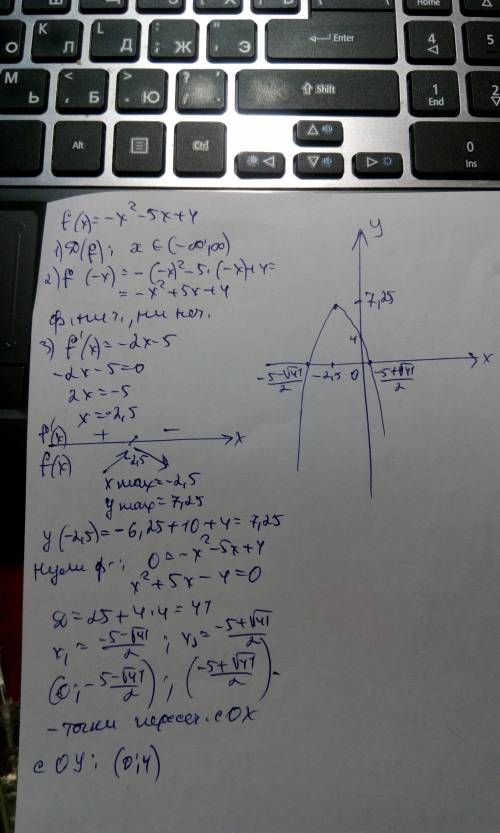 Home
О
К
Л
L
Д
:
;
Ж
"
'
Э
Enter
4
5
М
Ь
<
,
Б
>
.
Ю
?
/
Shift
1
End
2
Alt
Ctrl
0
Ins
f(x)=-x²-5x+4
1) D(f); x∈(-∞;∞)
2) f(-x)=-(-x)²-5·(-x)+4=
=-x²+5x+4
ф. ни ч., ни неч.
3) f'(x)=-2x-5
-2x-5=0
2x=-5
x=-2,5
f'(x) + - x
f(x) -2,5
x max=-2,5
y max=7,25
y(-2,5)=-6,25+10+4=7,25
нули ф-: 0=-x²-5x+4
x²+5x-4=0
D=25+4·4=41
x₁=(-5-√41)/2; x₂=(-5+√41)/2
(0;-5-√41/2); (-5+√41/2)-
-точки пересеч. с OX
с OY: (0;4)
y
7,25
4
x
-5-√41/2
-2,5
0
-5+√41/2